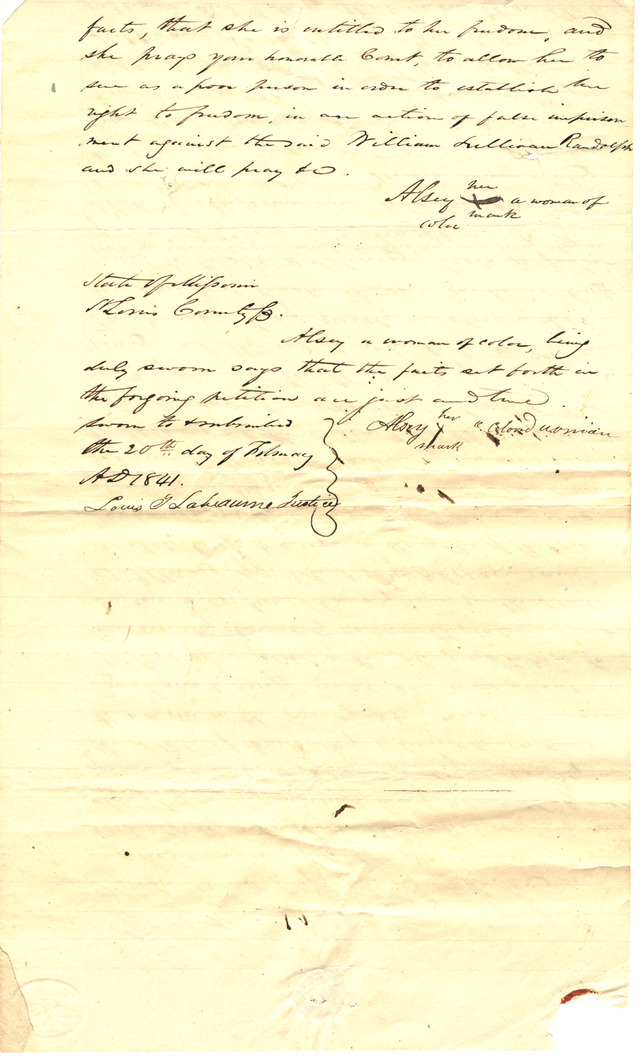 facts, that she is entitled to her freedom, and
she prays your honorable Court, to allow her to
sue as a poor person in order to establish her
right to freedom, in an action of false imprison
ment against the said William Sullivan Randolph
and she will pray &c.
her
Alsey X a woman of
color mark
State of Missouri
St Louis County ss.
Alsey a woman of color, being
duly sworn says that the facts set forth in
the forgoing petition are just and true
sworn to & subscribed
her
Alsey X a colored woman
mark
the 20th day of February
AD 1841.
Louis T Labeaume Justice